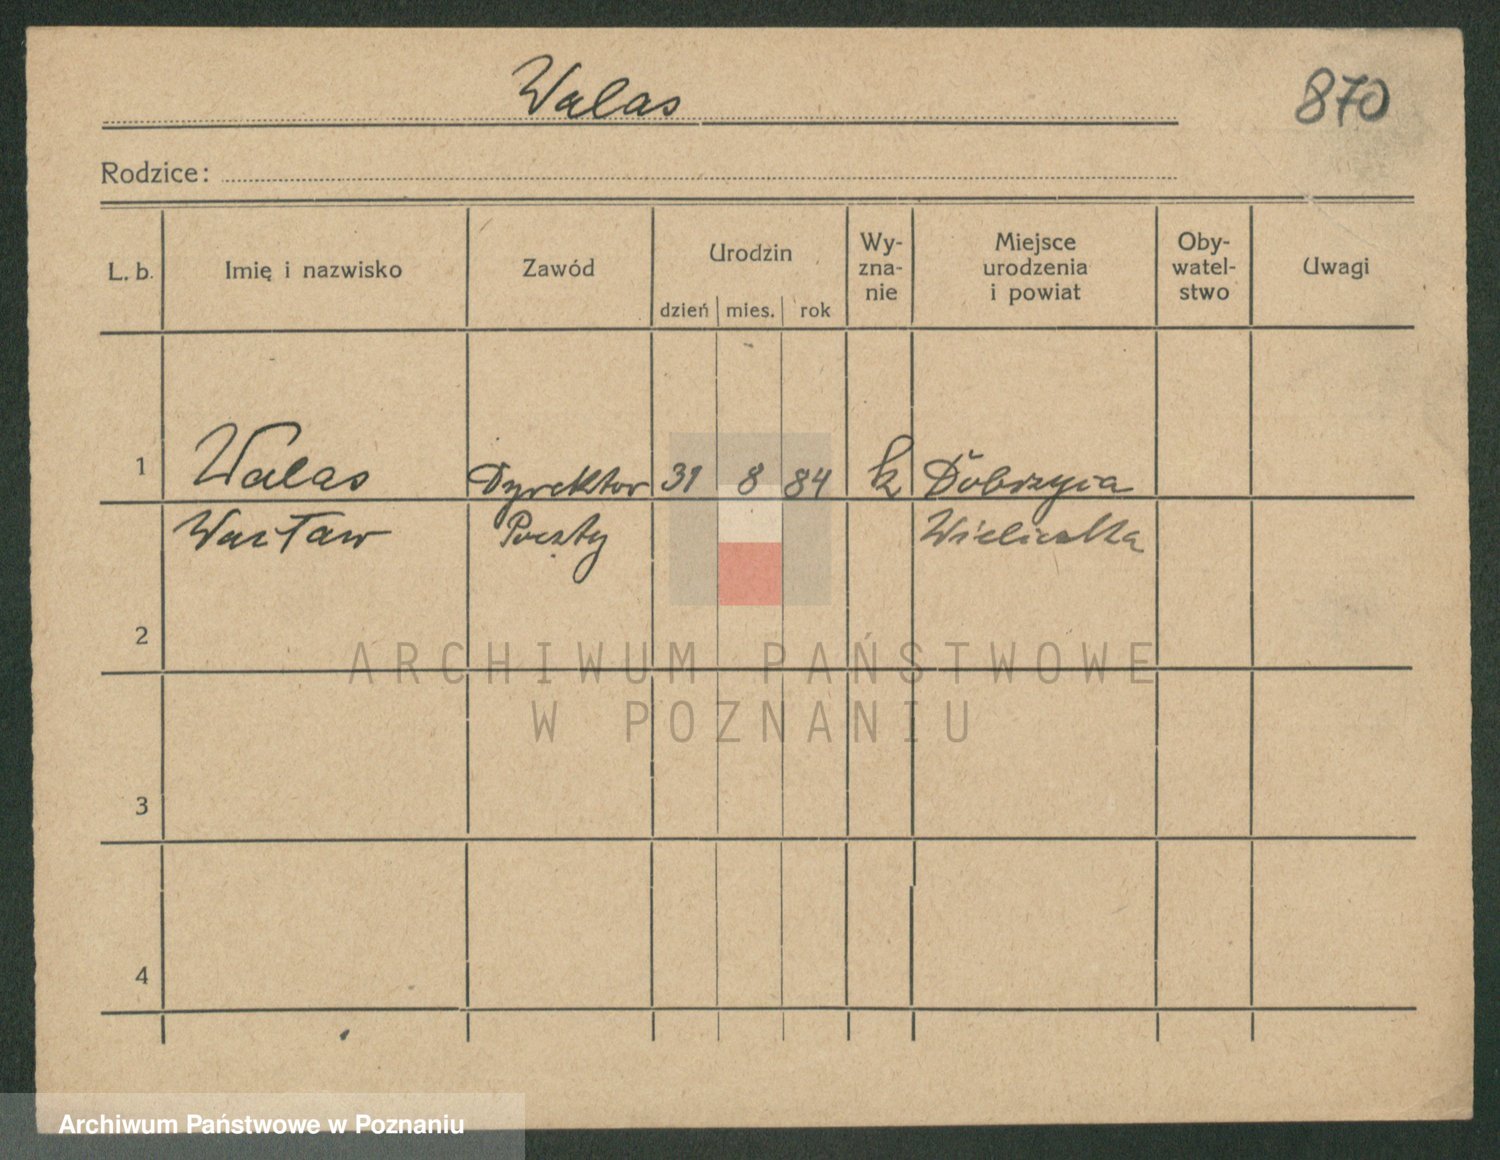 Walas
870
Rodzice:
L. b.
Imię i nazwisko
Zawód
Urodzin
dzień mies. rok
Wy-
zna-
nie
Miejsce
urodzenia
i powiat
Oby-
watel-
stwo
Uwagi
1
Walas Dyrektor 31 8 84 k Dobrzyca
Wacław Poczty Wieliczka
2
3
4
ARCHIWUM PAŃSTWOWE
W POZNANIU
Archiwum Państwowe w Poznaniu